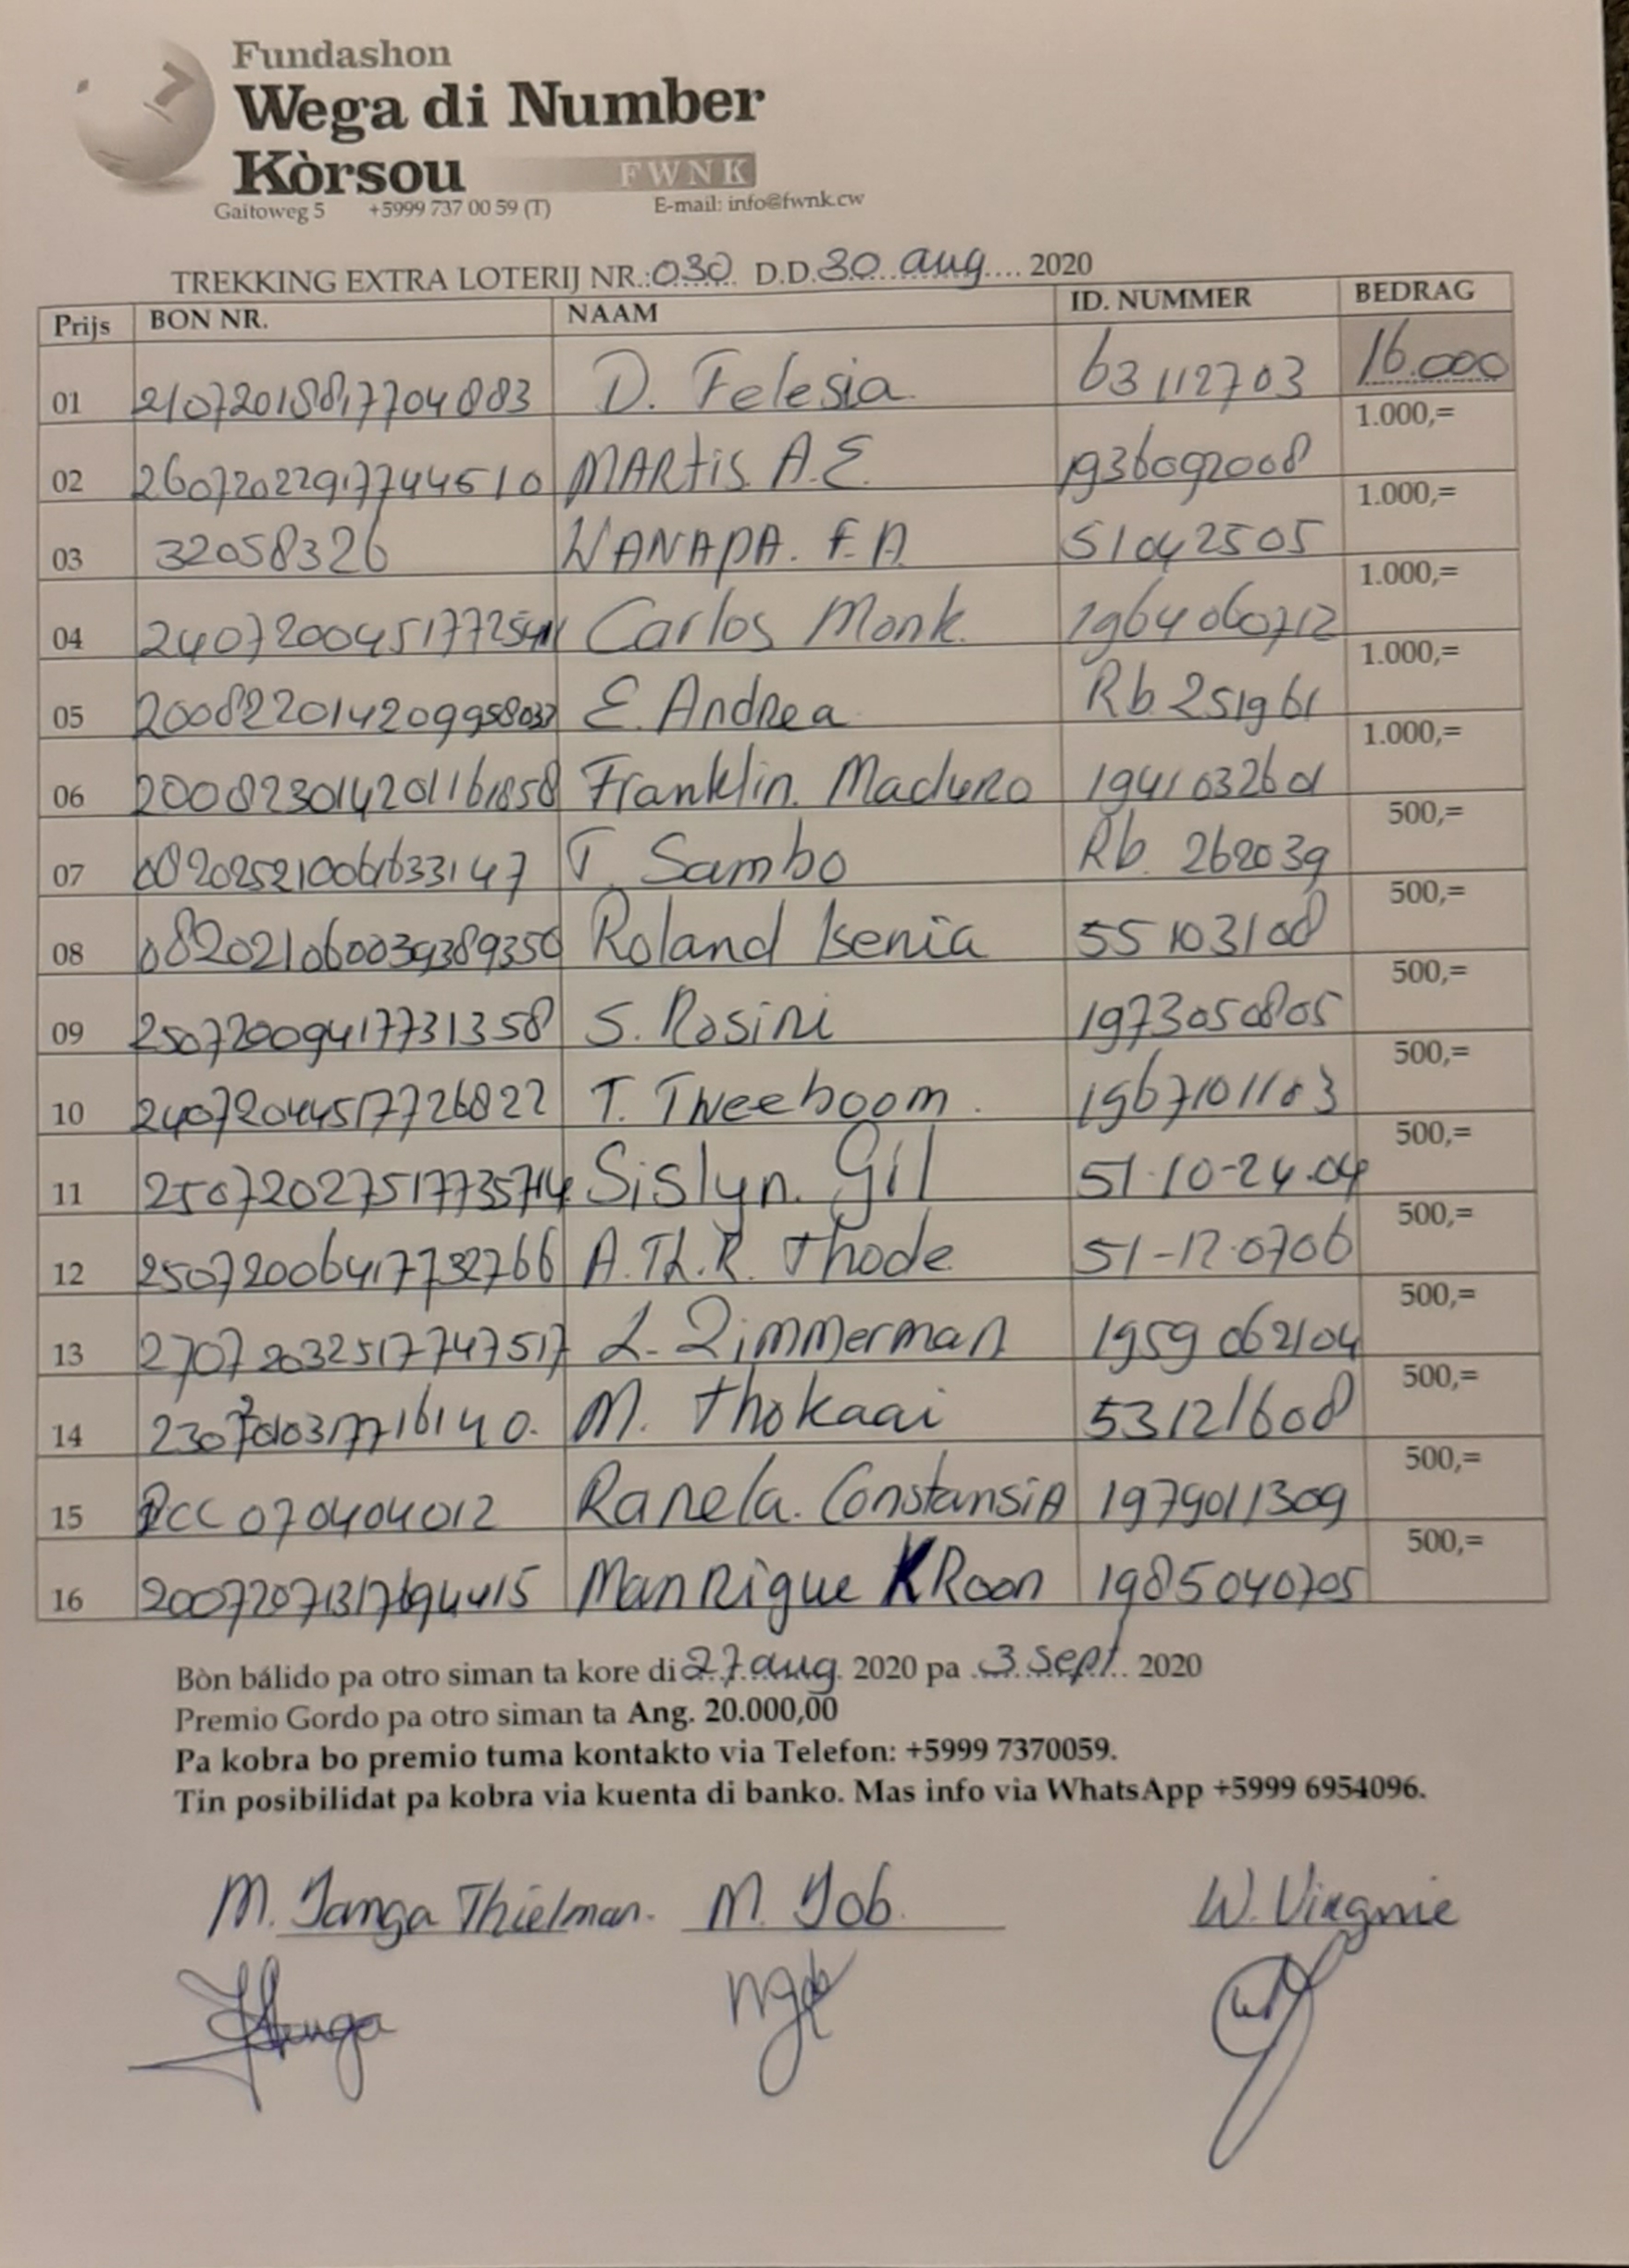 Fundashon
Wega di Number
Kòrsou
FWNK
Gaitoweg 5 +5999 737 00 59 (T) E-mail: info@fwnk.cw
TREKKING EXTRA LOTERIJ NR.: 030 D.D. 30 aug 2020
Prijs BON NR. NAAM ID. NUMMER BEDRAG
01 D. Felesia 63112703 16.000
02 MARtis A.E. 1936092008 1.000,=
03 32058326 WANAPA. F.A. 51042505 1.000,=
04 Carlos Monk. 1964060712 1.000,=
05 E. Andrea Rb 251961 1.000,=
06 Franklin. Maduro 1941032601 1.000,=
07 T. Sambo Rb. 262039 500,=
08 Roland Isenia 55103108 500,=
09 25072009417731358 S. Rosini 1973050805 500,=
10 24072044517726822 T. Tweeboom. 1967101103 500,=
11 Sislyn. Gil 51-10-24.04 500,=
12 25072006417732766 A.Th.R. Thode 51-12-0706 500,=
13 27072032517747517 L. Zimmerman 1959062104 500,=
14 M. Thokaai 53121608 500,=
15 070404012 Ranela. ConstansiA 1979011309 500,=
16 ManRique KRoon 1985040705 500,=
Bòn bálido pa otro siman ta kore di 27 aug. 2020 pa 3 sept. 2020
Premio Gordo pa otro siman ta Ang. 20.000,00
Pa kobra bo premio tuma kontakto via Telefon: +5999 7370059.
Tin posibilidat pa kobra via kuenta di banko. Mas info via WhatsApp +5999 6954096.
M. Janga Thielman. M. Job. W. Virginie